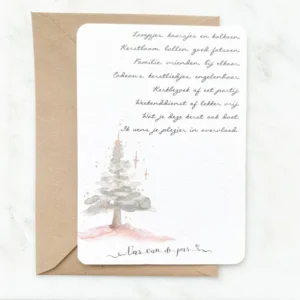 Lampjes, kaarsjes en bolkeen
Kerstboom, ballen, goed fatsoen
Familie, vrienden, bij elkaar
Cadeau's, kerstliedjes, engelenhaar
Kerkbezoek of eet partij
Weekenddienst of lekker vrij
Wat je deze kerst ook doet
Ik wens je plezier in overvloed